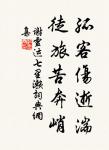 孤客傷逝湍
徒旅苦奔峭
謝靈运七里瀨詞典網
集